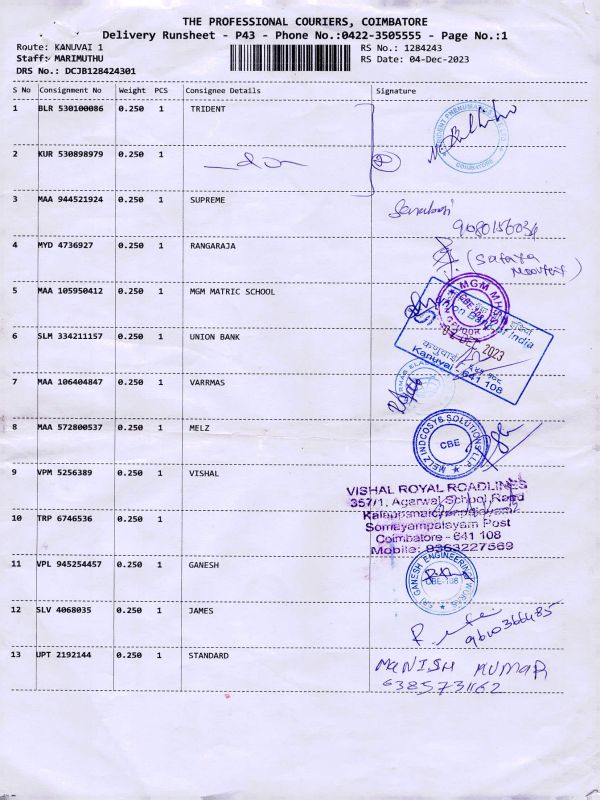 THE PROFESSIONAL COURIERS, COIMBATORE
Delivery Runsheet - P43 - Phone No.:0422-3505555 - Page No.:1
Route: KANUVAI 1 RS No.: 1284243
Staff: MARIMUTHU RS Date: 04-Dec-2023
DRS No.: DCJB128424301
S No Consignment No Weight PCS Consignee Details Signature
1 BLR 530100086 0.250 1 TRIDENT
COIMBATORE
2 KUR 530898979 0.250 1
3 MAA 944521924 0.250 1 SUPREME
9080156034
4 MYD 4736927 0.250 1 RANGARAJA
5 MAA 105950412 0.250 1 MGM MATRIC SCHOOL
MGM
6 SLM 334211157 0.250 1 UNION BANK
Union Bank of India
DEC 2023
Kanuvai - 641 108
7 MAA 106404847 0.250 1 VARRMAS
8 MAA 572800537 0.250 1 MELZ
MELZ INDCOSYB SOLUTIONS LLP
CBE
9 VPM 5256389 0.250 1 VISHAL
VISHAL ROYAL ROADLINES
357/1, Agarwal School Road
10 TRP 6746536 0.250 1
Somayampalayam Post
Coimbatore - 641 108
Mobile: 9363227569
11 VPL 945254457 0.250 1 GANESH
SRI GANESH ENGINEERING WORKS
CBE-108
12 SLV 4068035 0.250 1 JAMES
13 UPT 2192144 0.250 1 STANDARD
MANISH KUMAR
6385731162